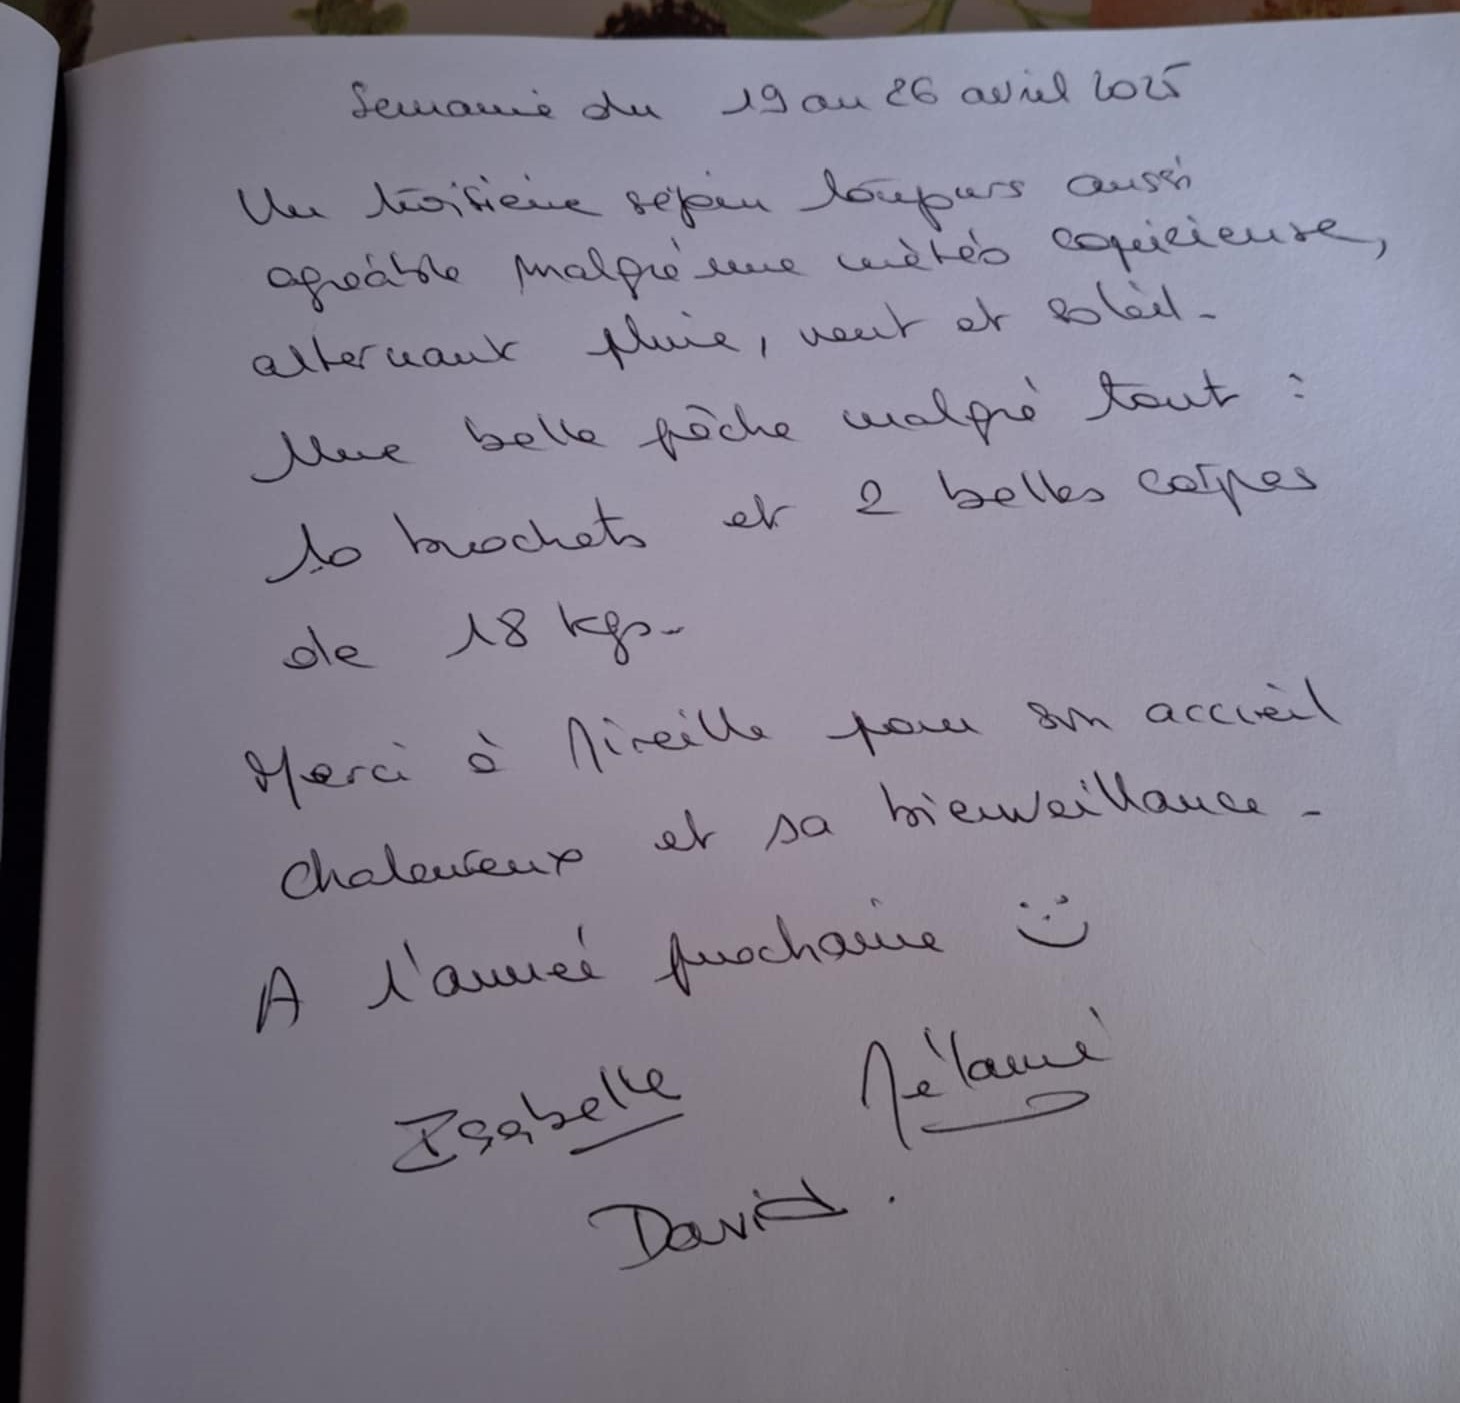 Semaine du 19 au 26 avril 2025
Un troisième séjour toujours aussi
agréable malgré une météo capricieuse,
alternant pluie, vent et soleil.
Une belle pêche malgré tout :
10 brochets et 2 belles carpes
de 18 kgs.
Merci à Mireille pour son accueil
chaleureux et sa bienveillance.
A l'année prochaine :)
Isabelle Mélanie
David.